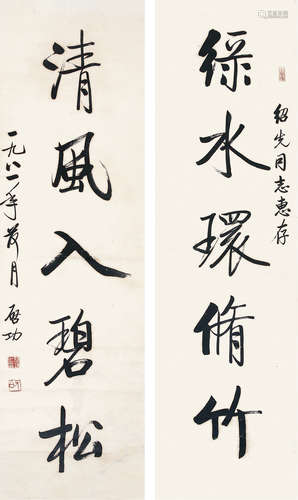 綵水環脩竹
紹先同志惠存
清風入碧松
一九八一年前月 启功